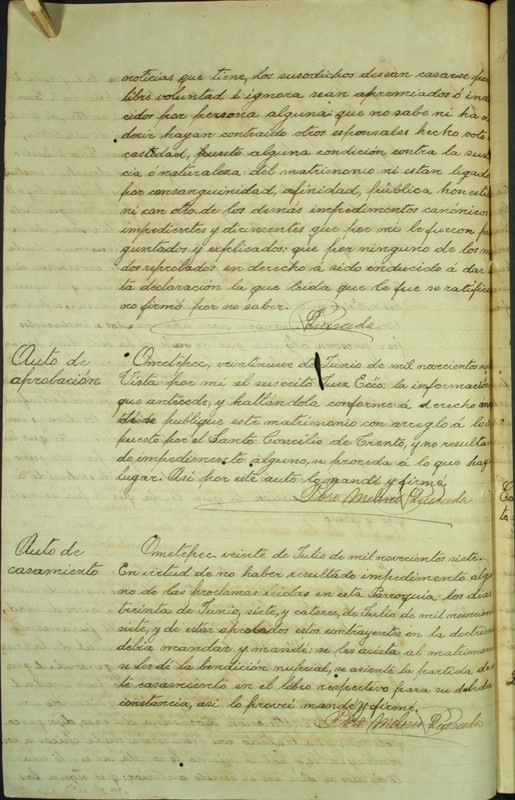 noticias que tiene, los susodichos desean casarse por
libre voluntad é ignora sean apremiados ó indu
cidos por persona alguna: que no sabe ni ha o
decir hayan contraido otros esponsales hecho voto
castidad, puesto alguna condición contra la sus
cia ó naturaleza del matrimonio ni estan ligado
por consanguinidad, afinidad, pública honesti
ni con otro de los demás impedimentos canónicos
impedientes y dirimentes que por mi le fueron pre
guntados y explicados: que por ninguno de los mo
dos reprobados en derecho á sido inducido á dar es
ta declaración la que leida que le fue se ratifico
no firmó por no saber.
Quesada
Auto de
aprobación
Ometepec, veintinueve de Junio de mil novecientos si
Vista por mi el suscrito Juez Ecco. la información
que antecede, y hallándola conforme á derecho man
do se publique este matrimonio con arreglo á lo dis
puesto por el Santo Concilio de Trento, y no resultan
do impedimento alguno, se proceda á lo que haya
lugar. Así por este auto lo mandé y firmé.
Pbro Quesada
Auto de
casamiento
Ometepec, veinte de Julio de mil novecientos siete.
En virtud de no haber resultado impedimento algu
no de las proclamas leidas en esta Parroquia, los dias
treinta de Junio, siete, y catorce, de Julio de mil novecien
siete, y de estar aprobados estos contrayentes en la doctrina
debia mandar y mandé: se les asista al matrimon
se les dé la bendición nupcial, se asiente la partida de es
te casamiento en el libro respectivo para su debida
constancia, así lo proveí mandé y firmé.
Pbro Quesada